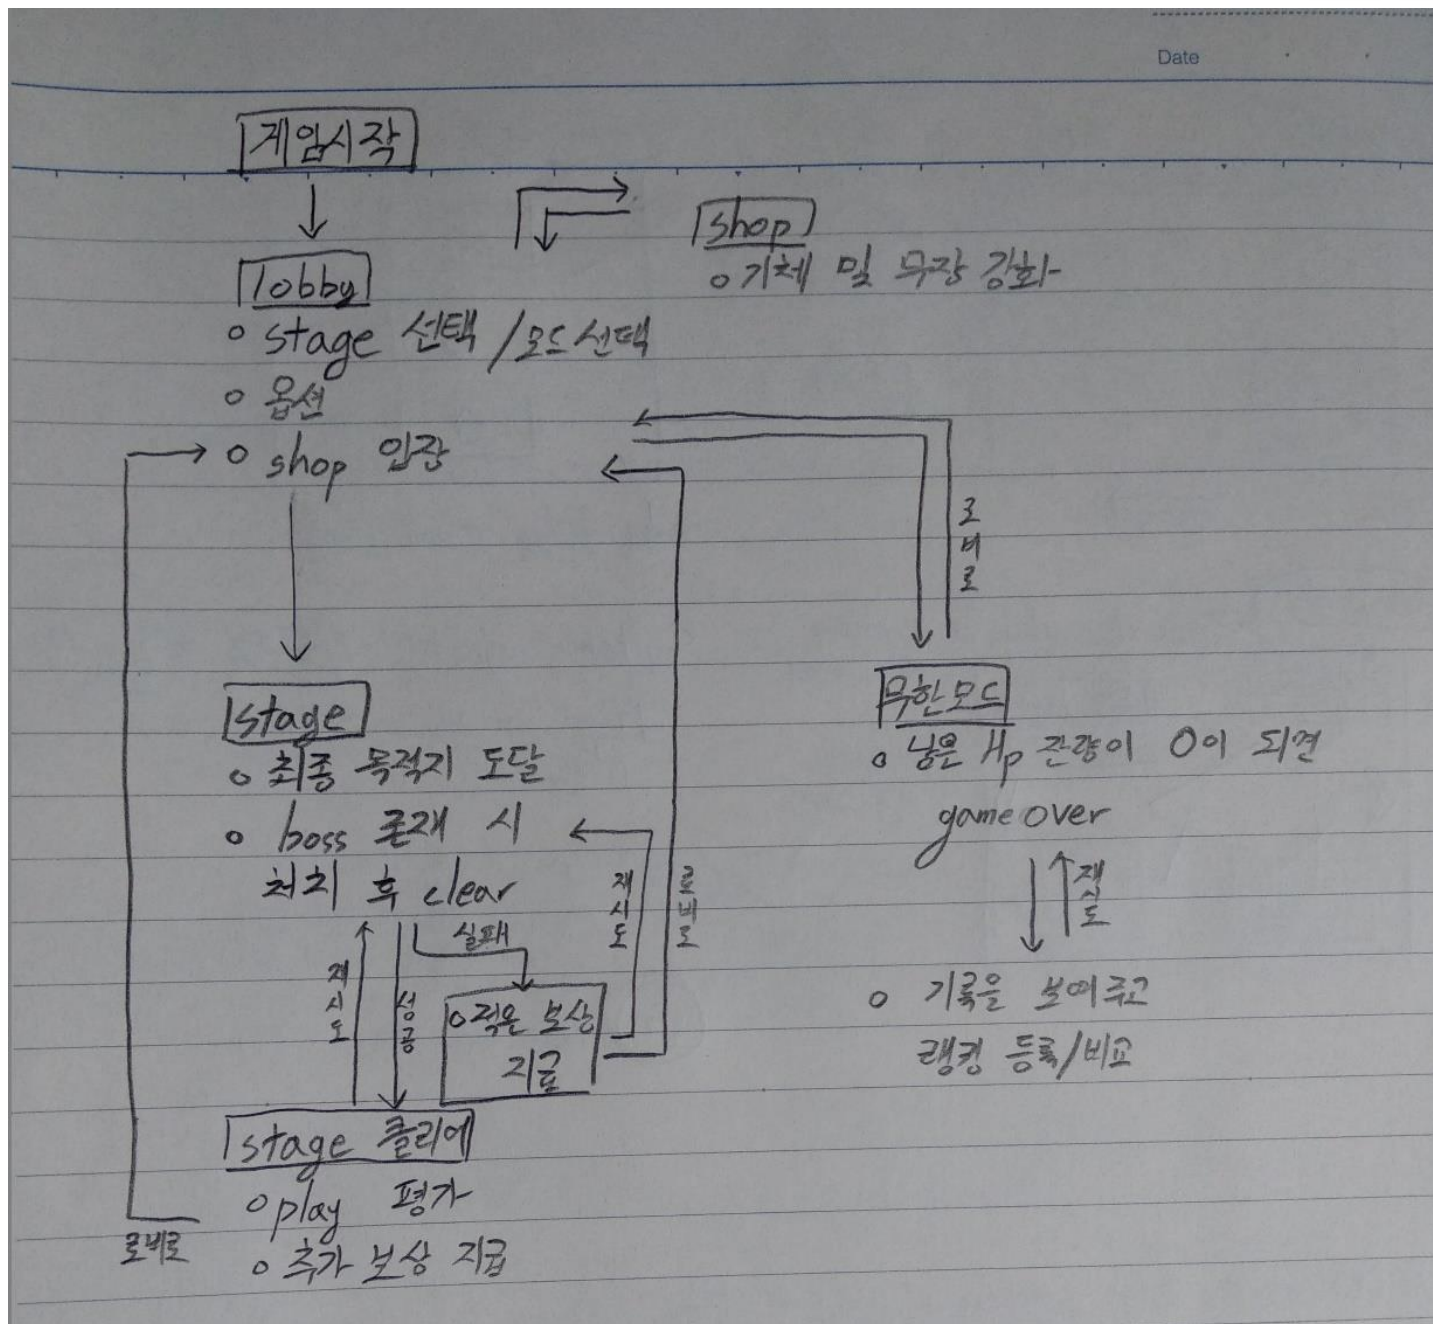 Date
게임시작
shop
o 기체 및 무장 강화
lobby
o stage 선택 /모드선택
o 옵션
o shop 입장
로비로
stage
o 최종 목적지 도달
o boss 존재 시
처치 후 clear
재시도
로비로
실패
재시도
성공
o 적은 보상
지급
stage 클리어
o play 평가
o 추가 보상 지급
로비로
무한모드
o 남은 Hp 잔량이 0이 되면
game over
재시도
o 기록을 보여주고
랭킹 등록/비교